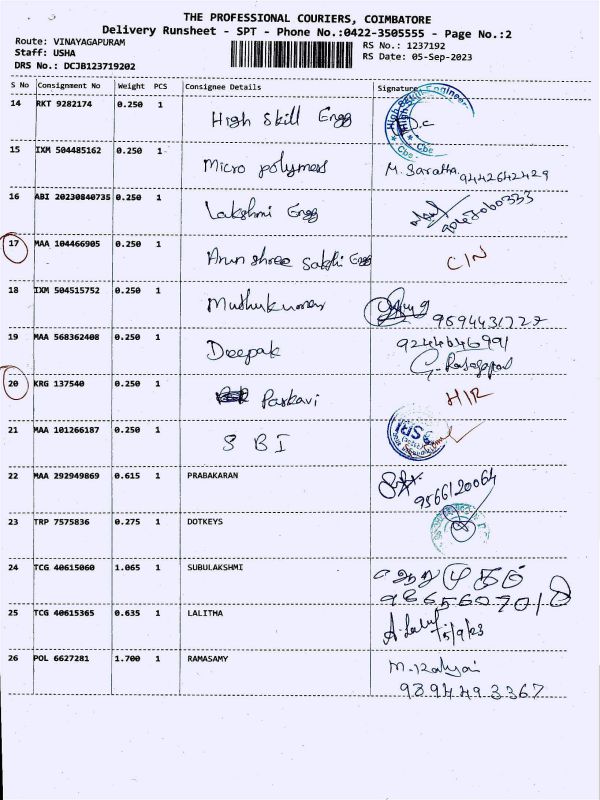 THE PROFESSIONAL COURIERS, COIMBATORE
Delivery Runsheet - SPT - Phone No.:0422-3505555 - Page No.:2
Route: VINAYAGAPURAM
Staff: USHA
DRS No.: DCJB123719202
RS No.: 1237192
RS Date: 05-Sep-2023
S No Consignment No Weight PCS Consignee Details Signature
14 RKT 9282174 0.250 1 High Skill Engg
15 IXM 504485162 0.250 1 Micro polymers M. Saratha 9442642429
16 ABI 20230840735 0.250 1 Lakshmi Engg
17 MAA 104466905 0.250 1 Arun shree sakthi Engg C/N
18 IXM 504515752 0.250 1 Muthukumar 9694431727
19 MAA 568362408 0.250 1 Deepak 9244646991
20 KRG 137540 0.250 1 Parkavi H/R
21 MAA 101266187 0.250 1 SBI
22 MAA 292949869 0.615 1 PRABAKARAN 9566120064
23 TRP 7575836 0.275 1 DOTKEYS
24 TCG 40615060 1.065 1 SUBULAKSHMI
25 TCG 40615365 0.635 1 LALITHA 5/9/23
26 POL 6627281 1.700 1 RAMASAMY
9394493367